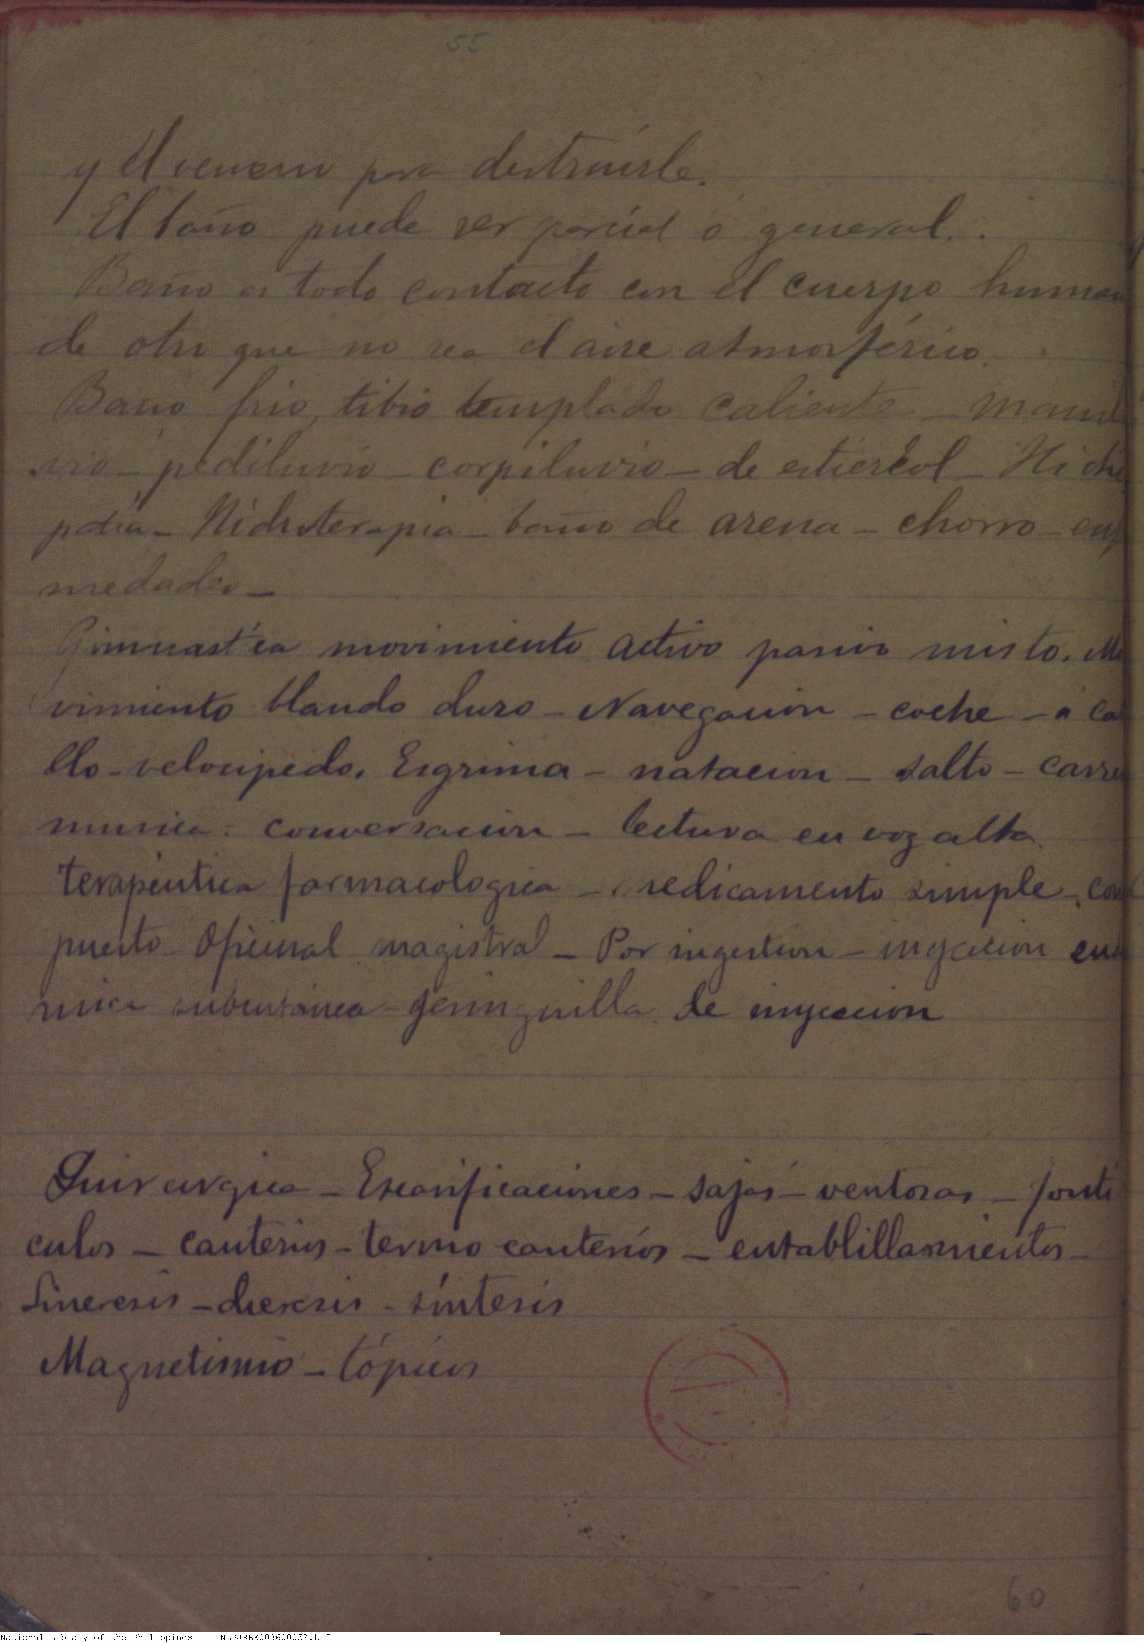 55
y el veneno para destruirle.
El baño puede ser parcial ó general.
Baño es todo contacto con el cuerpo human
de otro que no sea el aire atmosférico.
Baño frio, tibio templado caliente - mani
vio - pediluvio - corpiluvio - de estiercol - Hidr
patia - Hidroterapia - baño de arena - chorro - enf
medades -
Gimnastica movimiento activo pasivo misto. Mo
vimiento blando duro - Navegacion - coche - á ca
llo - velocipedo. Esgrima - natacion - salto - carre
musica. conversacion - lectura en voz alta.
terapéutica farmacologica - medicamento simple, com
puesto Oficinal magistral - Por ingestion - inyeccion
subcutánea - geringuilla de inyeccion
Quirurgica - Escarificaciones - sajas - ventosas - fonti
culos - cauterios - termo cauterios - entablillamientos -
Sineresis - dieresis - síntesis
Magnetismo - tópicos
60
National Library of the Philippines